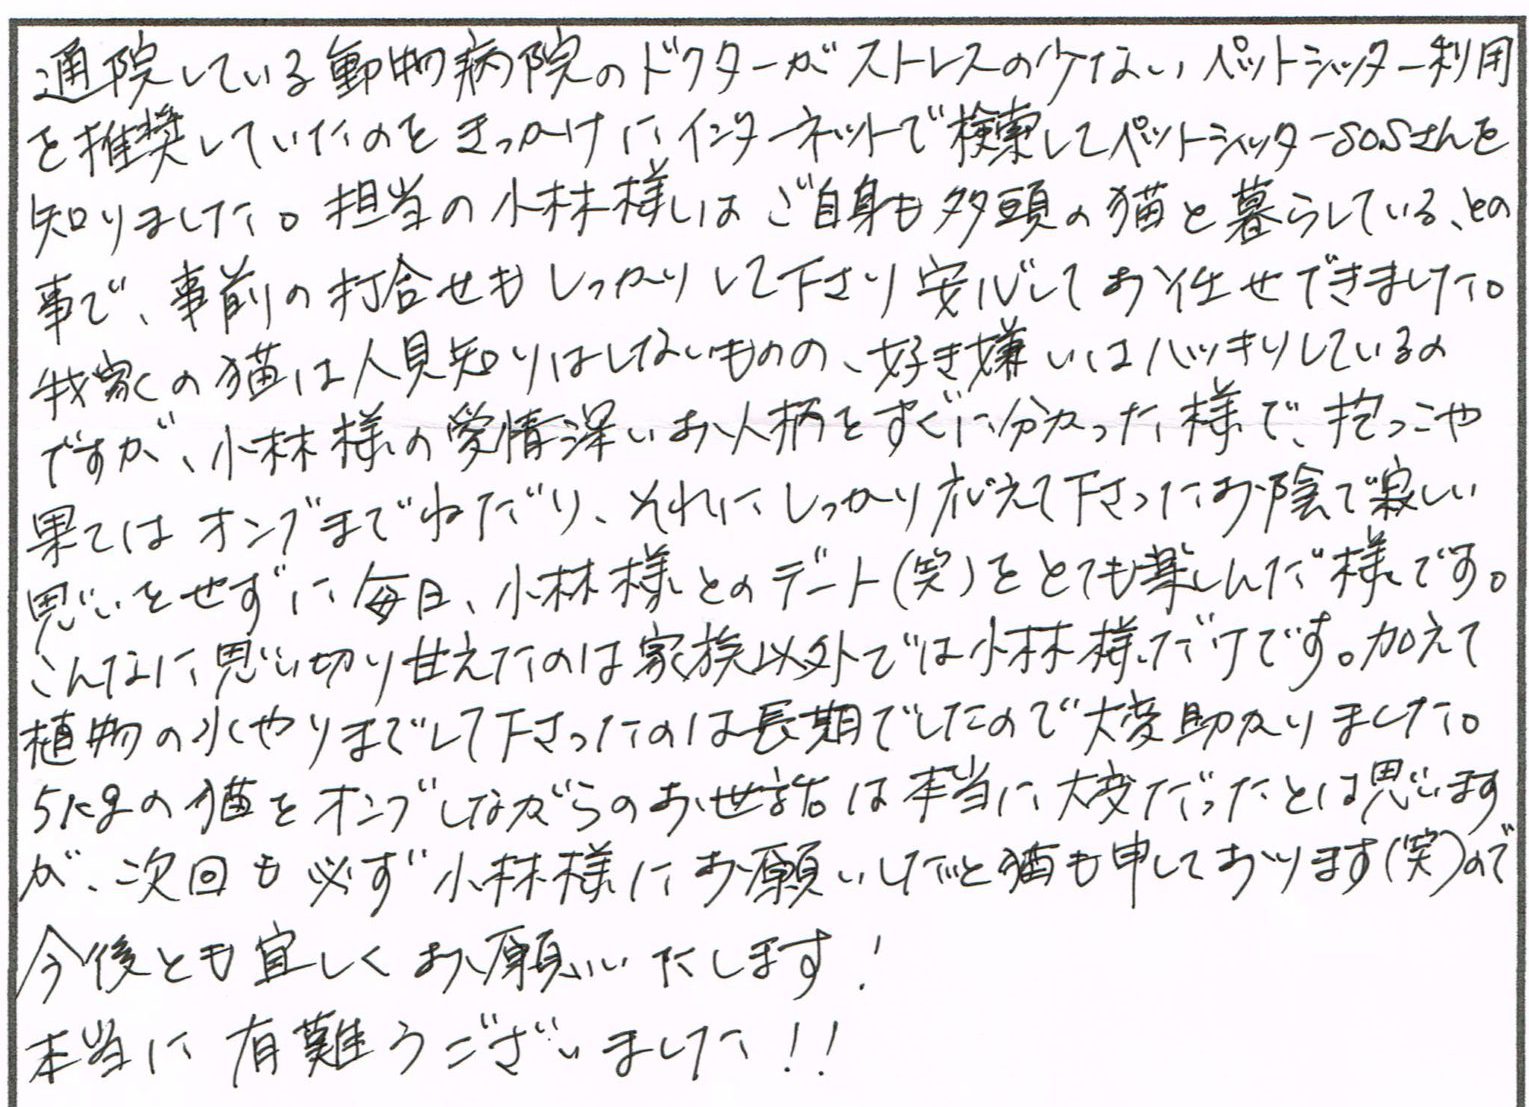 通院している動物病院のドクターがストレスの少ないペットシッター利用
を推奨していたのをきっかけにインターネットで検索してペットシッターSOSさんを
知りました。担当の小林様はご自身も多頭の猫と暮らしている、との
事で、事前の打合せもしっかりして下さり安心してお任せできました。
我家の猫は人見知りはしないものの、好き嫌いはハッキリしているの
ですが、小林様の愛情深いお人柄をすぐに分かった様で、抱っこや
果てはオンブまでねだり、それにしっかり応えて下さったお陰で寂しい
思いをせずに毎日、小林様とのデート(笑)をとても楽しんだ様です。
こんなに思い切り甘えたのは家族以外では小林様だけです。加えて
植物の水やりまでして下さったのは長期でしたので大変助かりました。
5kgの猫をオンブしながらのお世話は本当に大変だったとは思います
が、次回も必ず小林様にお願いしたいと猫も申しております(笑)ので
今後とも宜しくお願いいたします!
本当に有難うございました!!